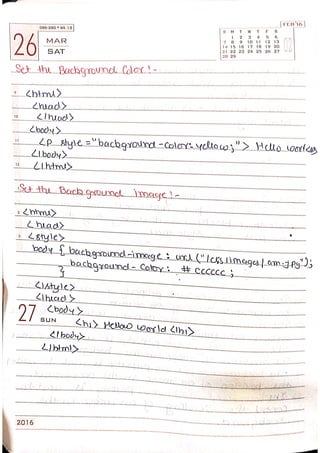 086-280 • Wk 13
FEB'16
26 MAR
SAT
S M T W T F S
1 2 3 4 5 6
7 8 9 10 11 12 13
14 15 16 17 18 19 20
21 22 23 24 25 26 27
28 29
Set the Background Color!-
9 <html>
<head>
10 </head>
<body>
11 <p style="background-color:yellow;"> Hello
</body>
12 </html>
Set the Background Image!-
<html>
<head>
<style>
body { background-image : url ("
background-color: #cccccc ;
}
</style>
</head>
27 <body>
SUN <h1> Hellow world <h1>
</body>
</html>
2016